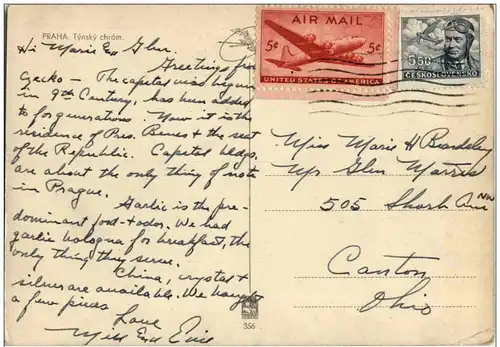 PRAHA. Týnský chrám.
Hi Marie End Glen.
Greetings from
Gecko - The capital was begun
in 9th Century, has been added
to for generations. Now it is the
residence of Pres. Benes & the seat
of the Republic. Capitol bldgs.
are about the only thing of note
in Prague.
Garlic is the pre-
dominant food & odor. We had
garlic bologna for breakfast, the
only thing they serve.
China, crystal &
silver are available. We bought
a few pieces
Love
End
AIR MAIL
5¢ 5¢
UNITED STATES OF AMERICA
5.50
ČESKOSLOVENSKO
Miss Marie H Beardsley
Mr Glen Marris
505 Shorb Ave NW
Canton
Ohio
356